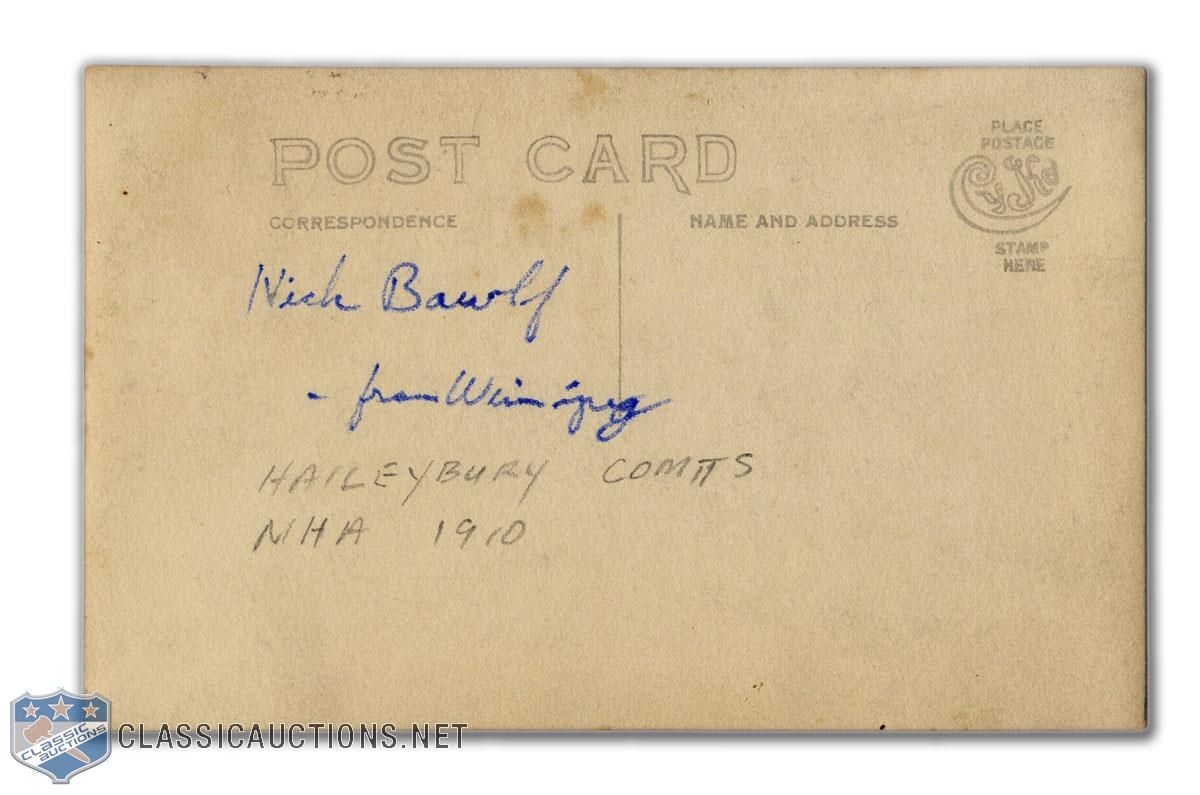 POST CARD
PLACE
POSTAGE
STAMP
HERE
CORRESPONDENCE
NAME AND ADDRESS
Nick Bawlf
- from Winnipeg
HAILEYBURY COMTTS
NHA 1910
CLASSIC
AUCTIONS
CLASSICAUCTIONS.NET